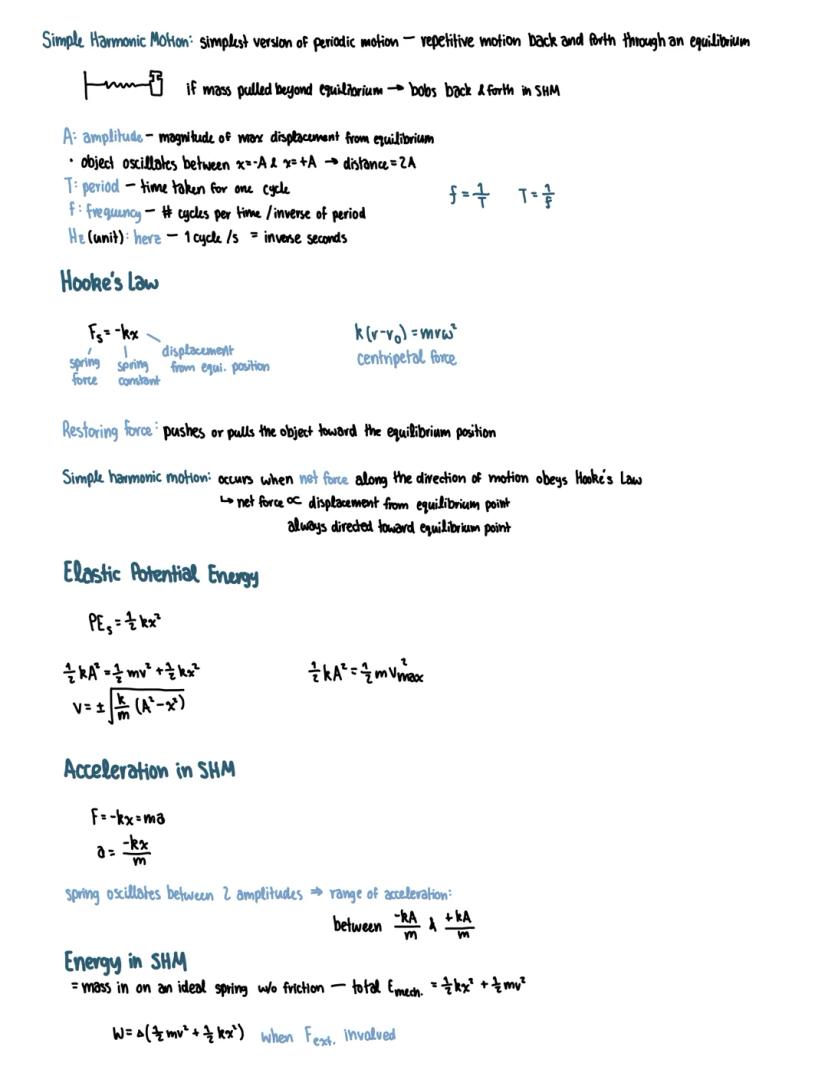 Simple Harmonic Motion: simplest version of periodic motion — repetitive motion back and forth through an equilibrium
if mass pulled beyond equilibrium → bobs back & forth in SHM
A: amplitude – magnitude of max displacement from equilibrium
• object oscillates between x=-A & x=+A → distance=2A
T: period – time taken for one cycle
f = 1/T   T = 1/f
f: frequency – # cycles per time / inverse of period
Hz (unit): herz – 1 cycle /s = inverse seconds
Hooke's Law
Fs = -kx
k(r-r₀) = mrω²
spring force
spring constant
displacement from equi. position
centripetal force
Restoring force: pushes or pulls the object toward the equilibrium position
Simple harmonic motion: occurs when net force along the direction of motion obeys Hooke's Law
↳ net force ∝ displacement from equilibrium point
always directed toward equilibrium point
Elastic Potential Energy
PEs = ½ kx²
½ kA² = ½ mv² + ½ kx²
½ kA² = ½ mv²max
v = ± √(k/m (A²-x²))
Acceleration in SHM
F = -kx = ma
a = -kx/m
spring oscillates between 2 amplitudes ⇒ range of acceleration:
between -kA/m & +kA/m
Energy in SHM
= mass in on an ideal spring w/o friction — total Emech. = ½ kx² + ½ mv²
W = Δ(½ mv² + ½ kx²) when Fext. involved